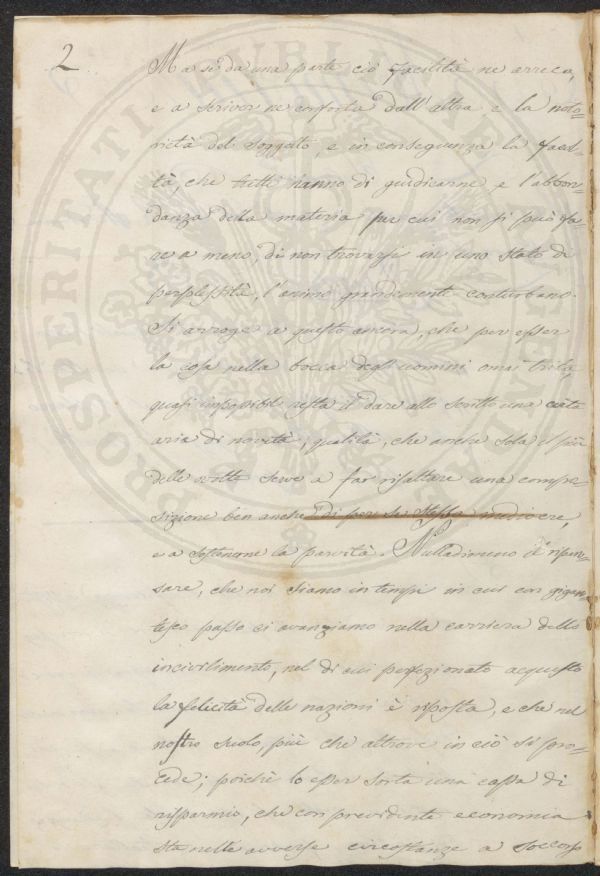 2
Ma se da una parte ciò facilità ne arreca,
e a scriver ne conforta dall'altra e la noto=
rietà del soggetto, e in conseguenza la facol=
tà, che tutti hanno di giudicarne, e l'abbon=
danza della materia per cui non si può fa=
re a meno, di non trovarsi in uno stato di
perplessità, l'animo grandemente conturbano.
Si arroge a questo ancora, che per esser
la cosa nella bocca degl'uomini omai trita,
quasi impossibil resta il dare allo scritto una certa
aria di novità, qualità, che anche sola il più
delle volte serve a far risaltare una compo=
sizione ben anche di per se stessa mediocre,
e a sostenerne la parvità. Nulladimeno è ripen=
sare, che noi siamo in tempi in cui con gigan=
tesco passo ci avanziamo nella carriera dello
incivilimento, nel di cui perfezionato acquisto
la felicità delle nazioni è riposta, e che nel
nostro suolo, più che altrove in ciò si pro=
cede; poichè lo esser sorta una cassa di
risparmio, che con previdente economia
sta nelle avverse circostanze a soccorso
PROSPERITATI PUBLICAE AUGENDAE